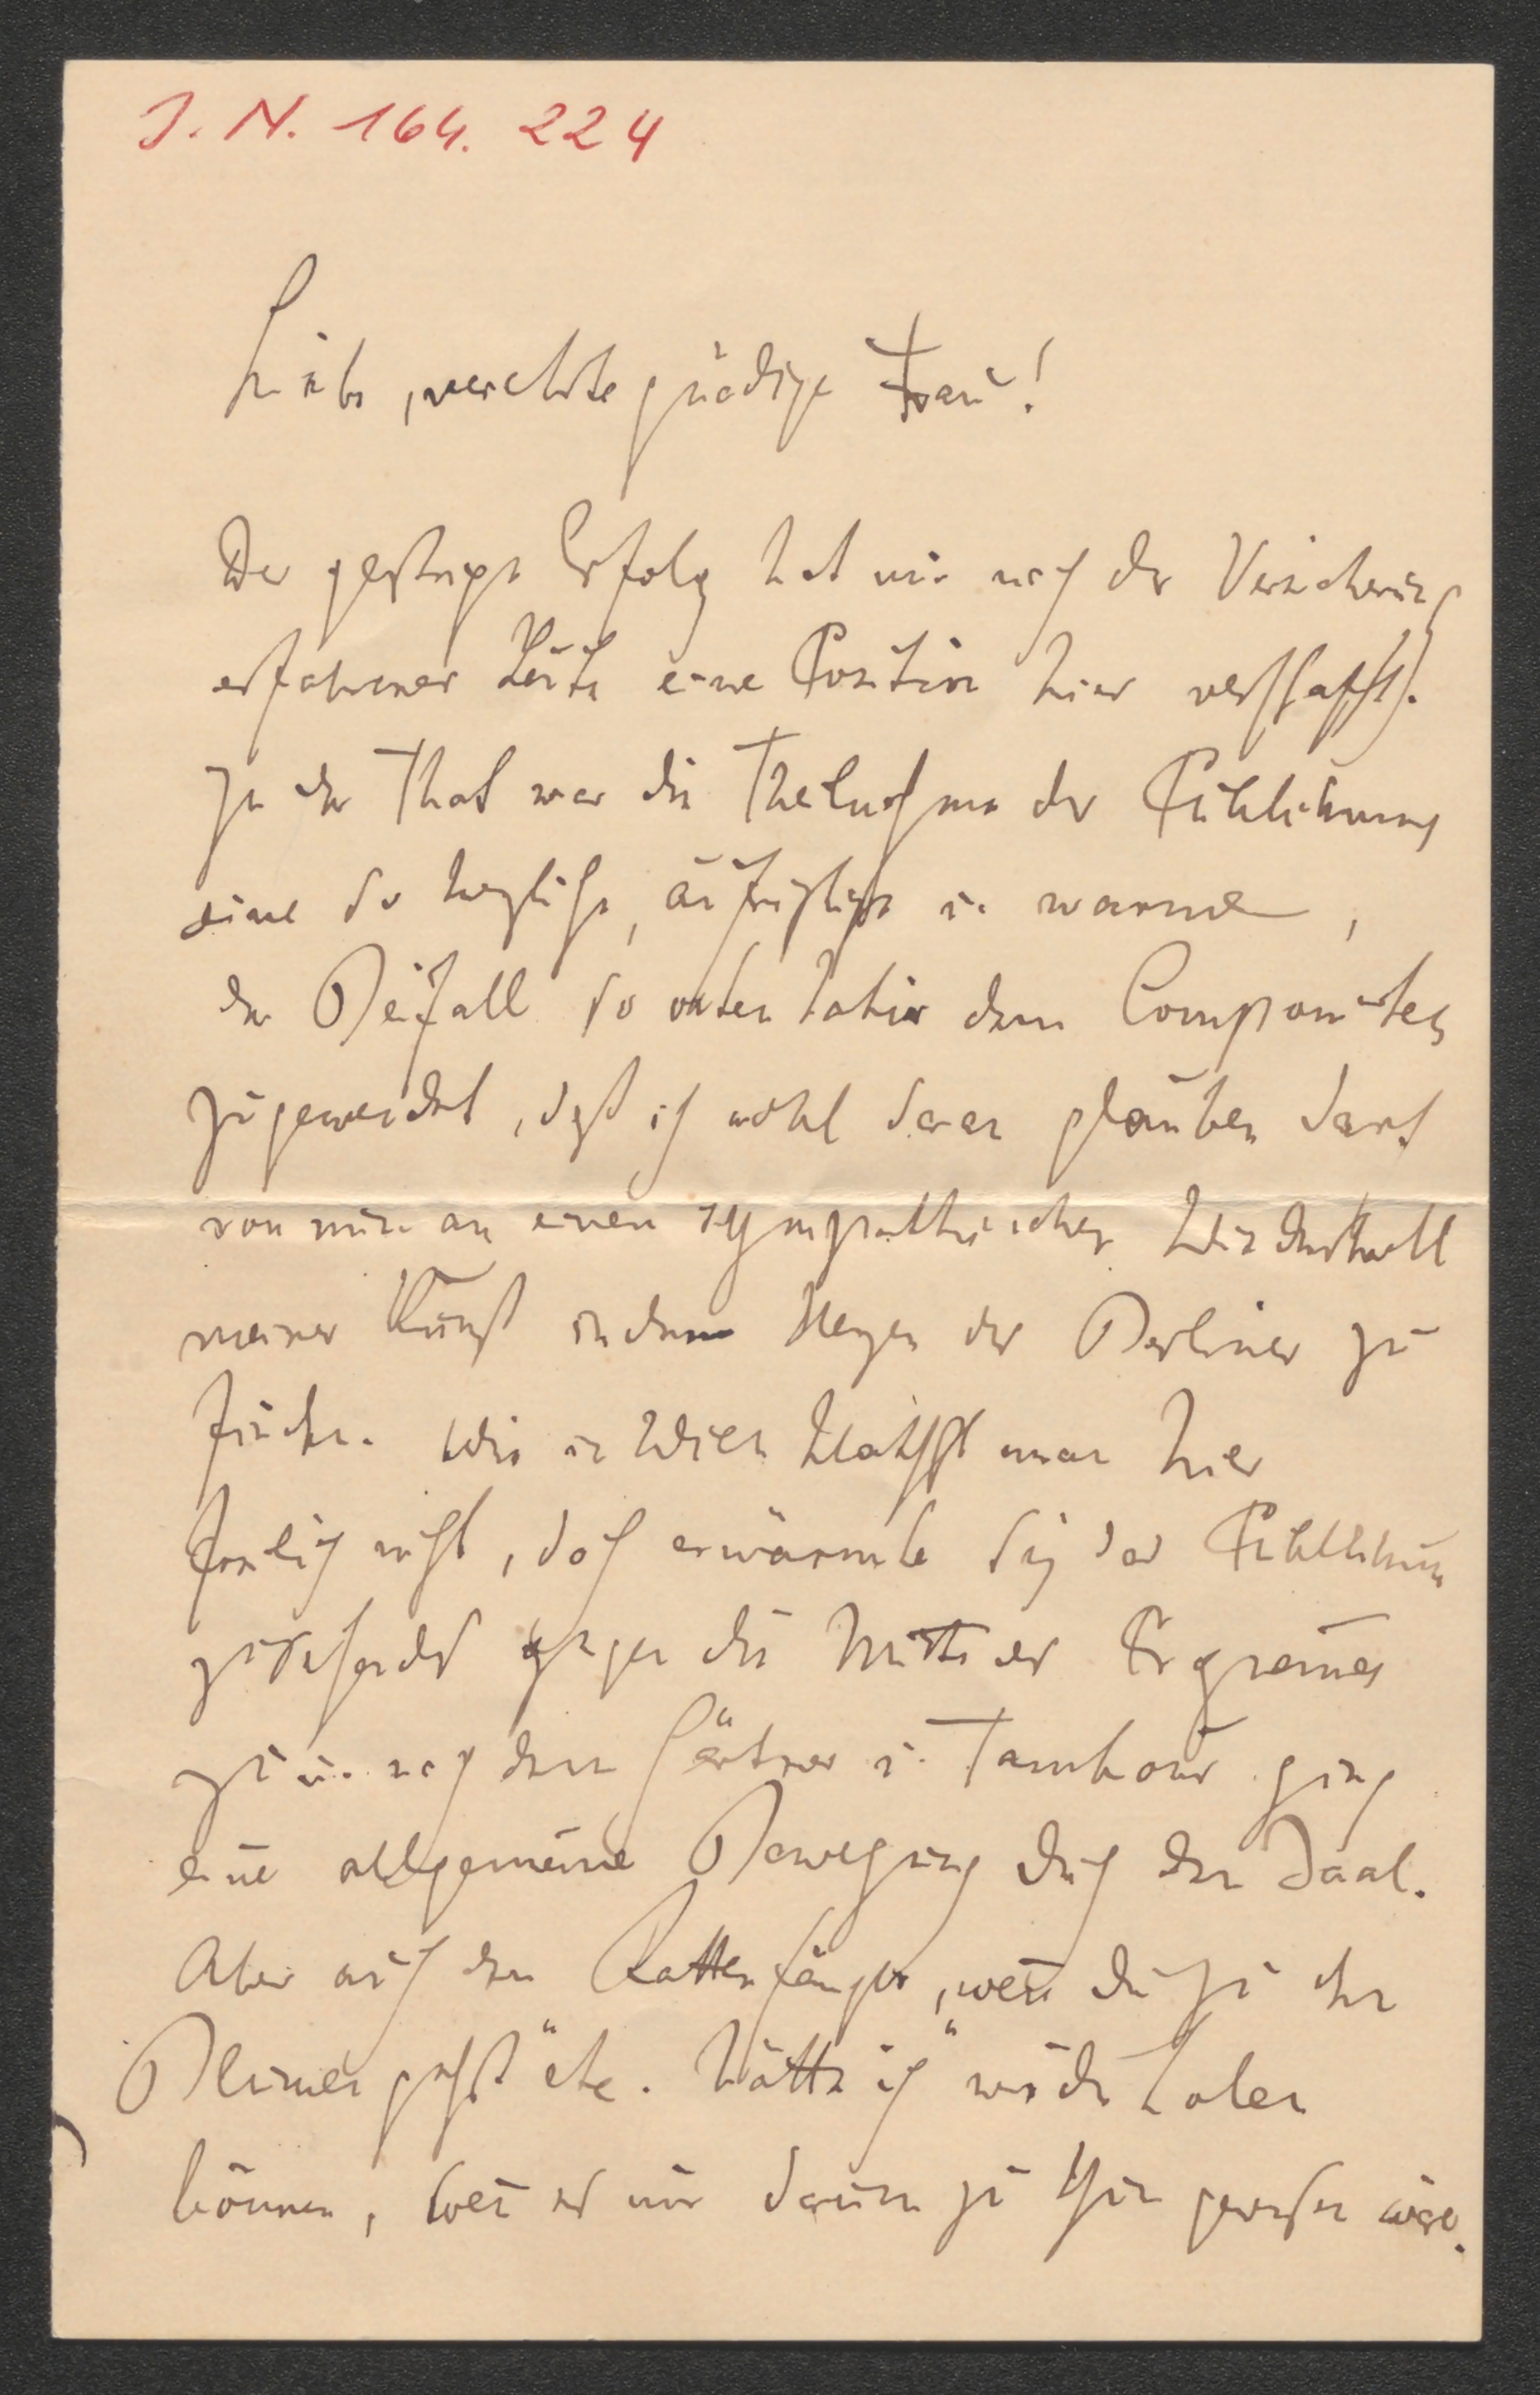 J. N. 164. 224
Liebe, verehrte gnädige Frau!
Der gestrige Erfolg hat mir nach der Versicherung
erfahrener Leute eine Position hier verschafft.
In der That war die Theilnahme des Publikums
eine so herzliche, aufrichtige u. warme,
der Beifall so ostentativ dem Componisten
zugewendet, daß ich wohl daran glauben darf
von nun an einen sympathischen Widerhall
meiner Kunst in dem Herzen der Berliner zu
finden. Wie in Wien klatscht man hier
freilich nicht, doch erwärmte sich das Publikum
zusehends gegen die Mitte des Programmes
zu u. nach dem Gärtner u. Tambour ging
eine allgemeine Bewegung durch den Saal.
Aber auch den Rattenfänger, "wenn du zu den
Blumen gehst" etc. hätte ich wiederholen
können, wenn es mir darum zu thun gewesen wäre.